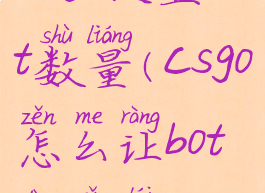 shù liáng
t数量(csgo
zěn me ràng
怎么让bot